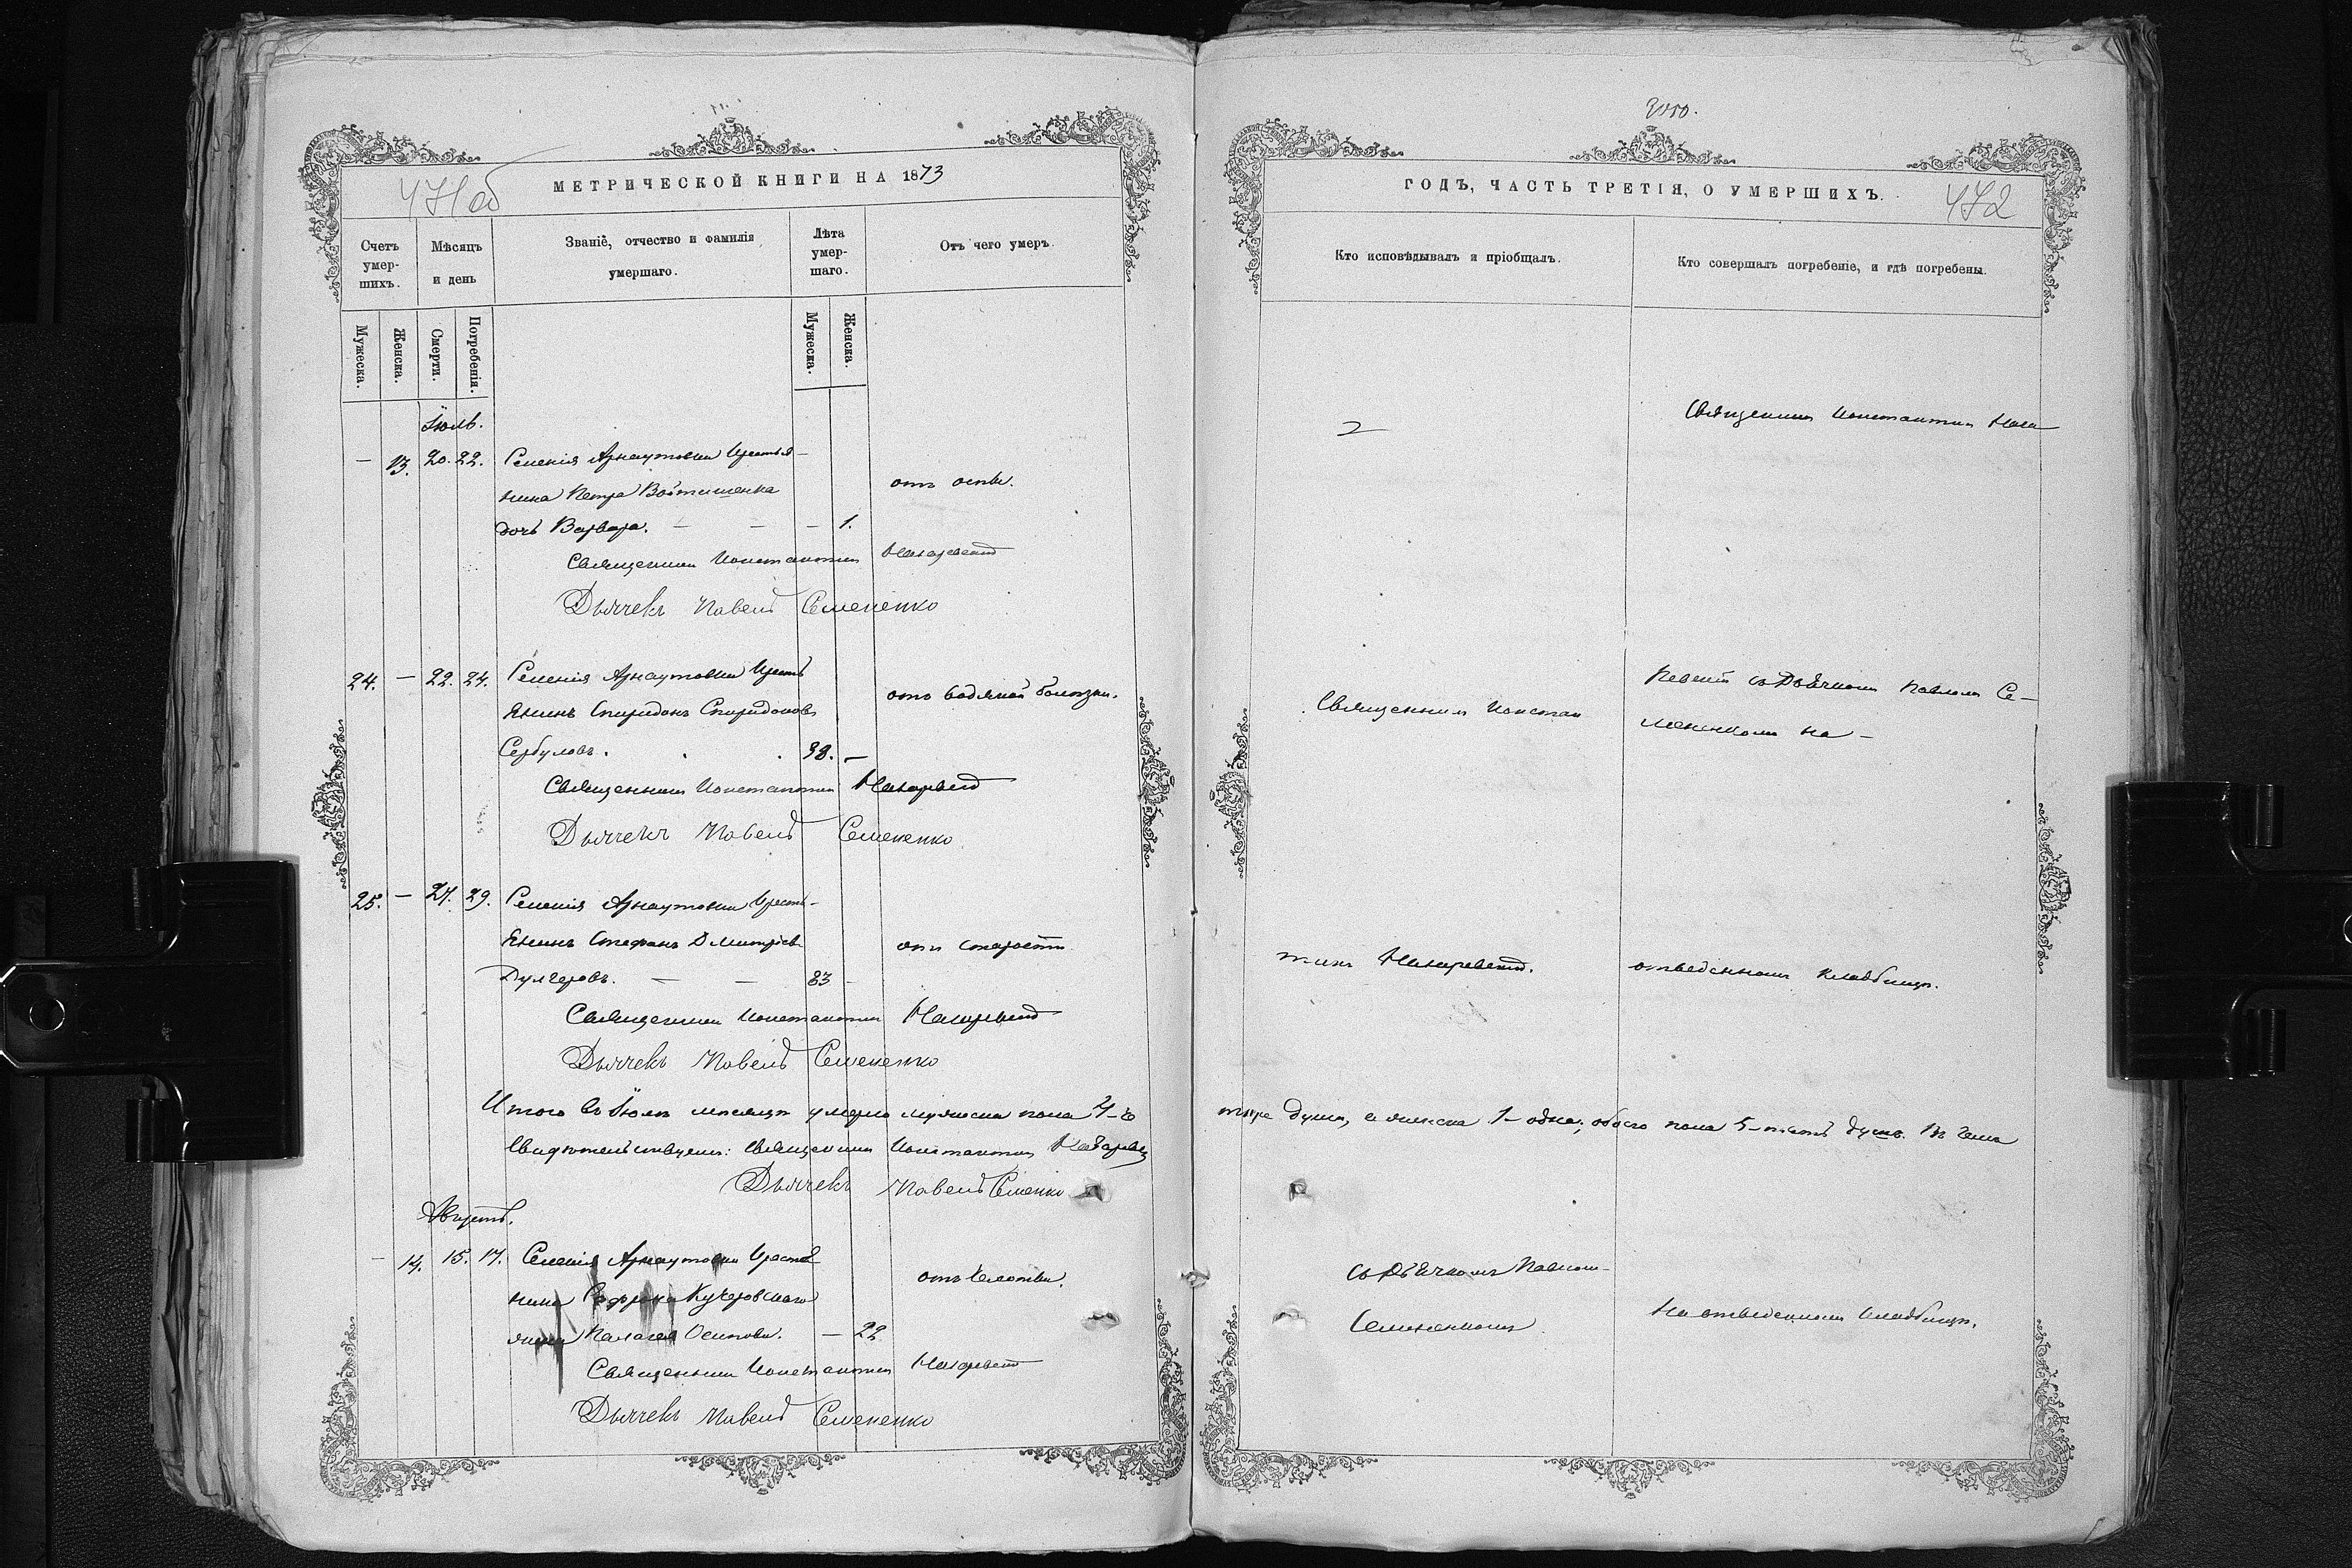 471 об
МЕТРИЧЕСКОЙ КНИГИ НА 1873
Счетъ умершихъ.
Мѣсяцъ и день
Званіе, отчество и фамилія умершаго.
Лѣта умершаго.
Отъ чего умеръ.
Мужеска.
Женска.
Смерти.
Погребенія.
Мужеска.
Женска.
Іюль.
— 13. 20. 22. Селенія Арнаутовки Крестья-
нина Петра Войтишенка
дочь Варвара. — — — 1.
отъ оспы.
Священникъ Константин Назаревскій
Дьячекъ Павелъ Семененко
24. — 22. 24. Селенія Арнаутовки Кресть
янинъ Спиридонъ Спиридоновъ
Сербуловъ. 38. —
отъ водяной болѣзни.
Священникъ Константин Назаревскій
Дьячекъ Павелъ Семененко
25. — 27. 29. Селенія Арнаутовки Кресть-
янинъ Стефанъ Дмитріевъ
Дулгеровъ. — — 83 —
отъ старости
Священникъ Константин Назаревскій
Дьячекъ Павелъ Семененко
Итого въ Іюлѣ мѣсяцѣ умерло мужеска пола 4-че
Свидѣтельствуемъ: Священникъ Константин Назаревскій
Дьячекъ Павелъ Семененко
Августъ.
— 14. 15. 17. Селенія Арнаутовки Крестья
нина Софрона Кучеровскаго
жена Палагея Осипова. — 22
отъ чахотки.
Священникъ Константин Назаревскій
Дьячекъ Павелъ Семененко
ГОДЪ, ЧАСТЬ ТРЕТІЯ, О УМЕРШИХЪ.
472
Кто исповѣдывалъ и пріобщалъ.
Кто совершалъ погребеніе, и гдѣ погребены.
Священникъ Константин Наза
Священникъ Констан
ревскій съ Дьячкомъ Павломъ Се-
мененкомъ на —
тинъ Назаревскій.
отведенномъ кладбищѣ.
тыре души, а женска 1-одна; обоего пола 5-пять душъ. Въ чемъ
съ Дьячкомъ Павлом-
Семененкомъ
На отведенномъ кладбищѣ.